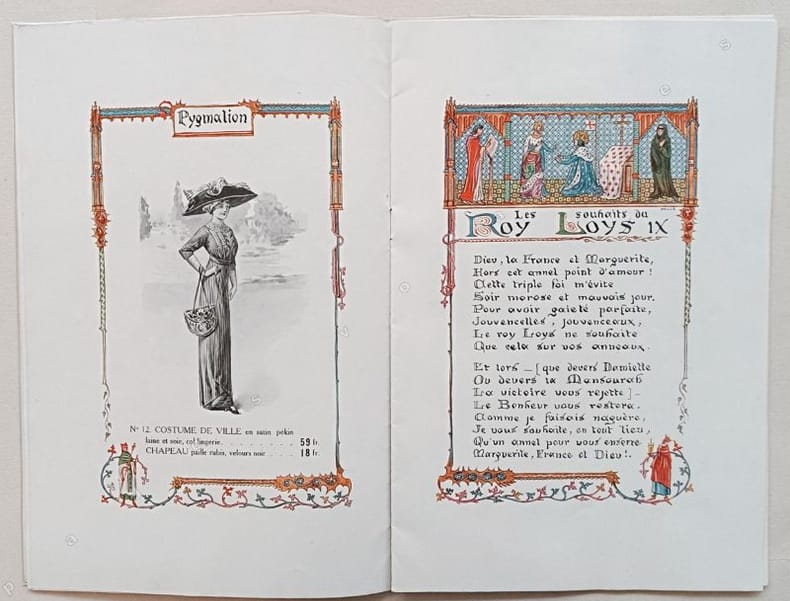 Pygmalion
N° 12. COSTUME DE VILLE en satin pékin
laine et soie, col lingerie. . . . . . . . . 59 fr.
CHAPEAU paille rubis, velours noir . . . . 18 fr.
Les souhaits du
Roy Loys IX
Dieu, la France et Marguerite,
Hors cet annel point d'amour !
Cette triple foi m'évite
Soir morose et mauvais jour.
Pour avoir gaieté parfaite,
Jouvencelles, jouvenceaux,
Le roy Loys ne souhaite
Que cela sur vos anneaux.
Et lors — [que devers Damiette
Ou devers la Mansourah
La victoire vous rejette] —
Le Bonheur vous restera.
Comme je faisais naguère,
Je vous souhaite, en tout lieu,
Qu'un annel pour vous enserre
Marguerite, France et Dieu !.